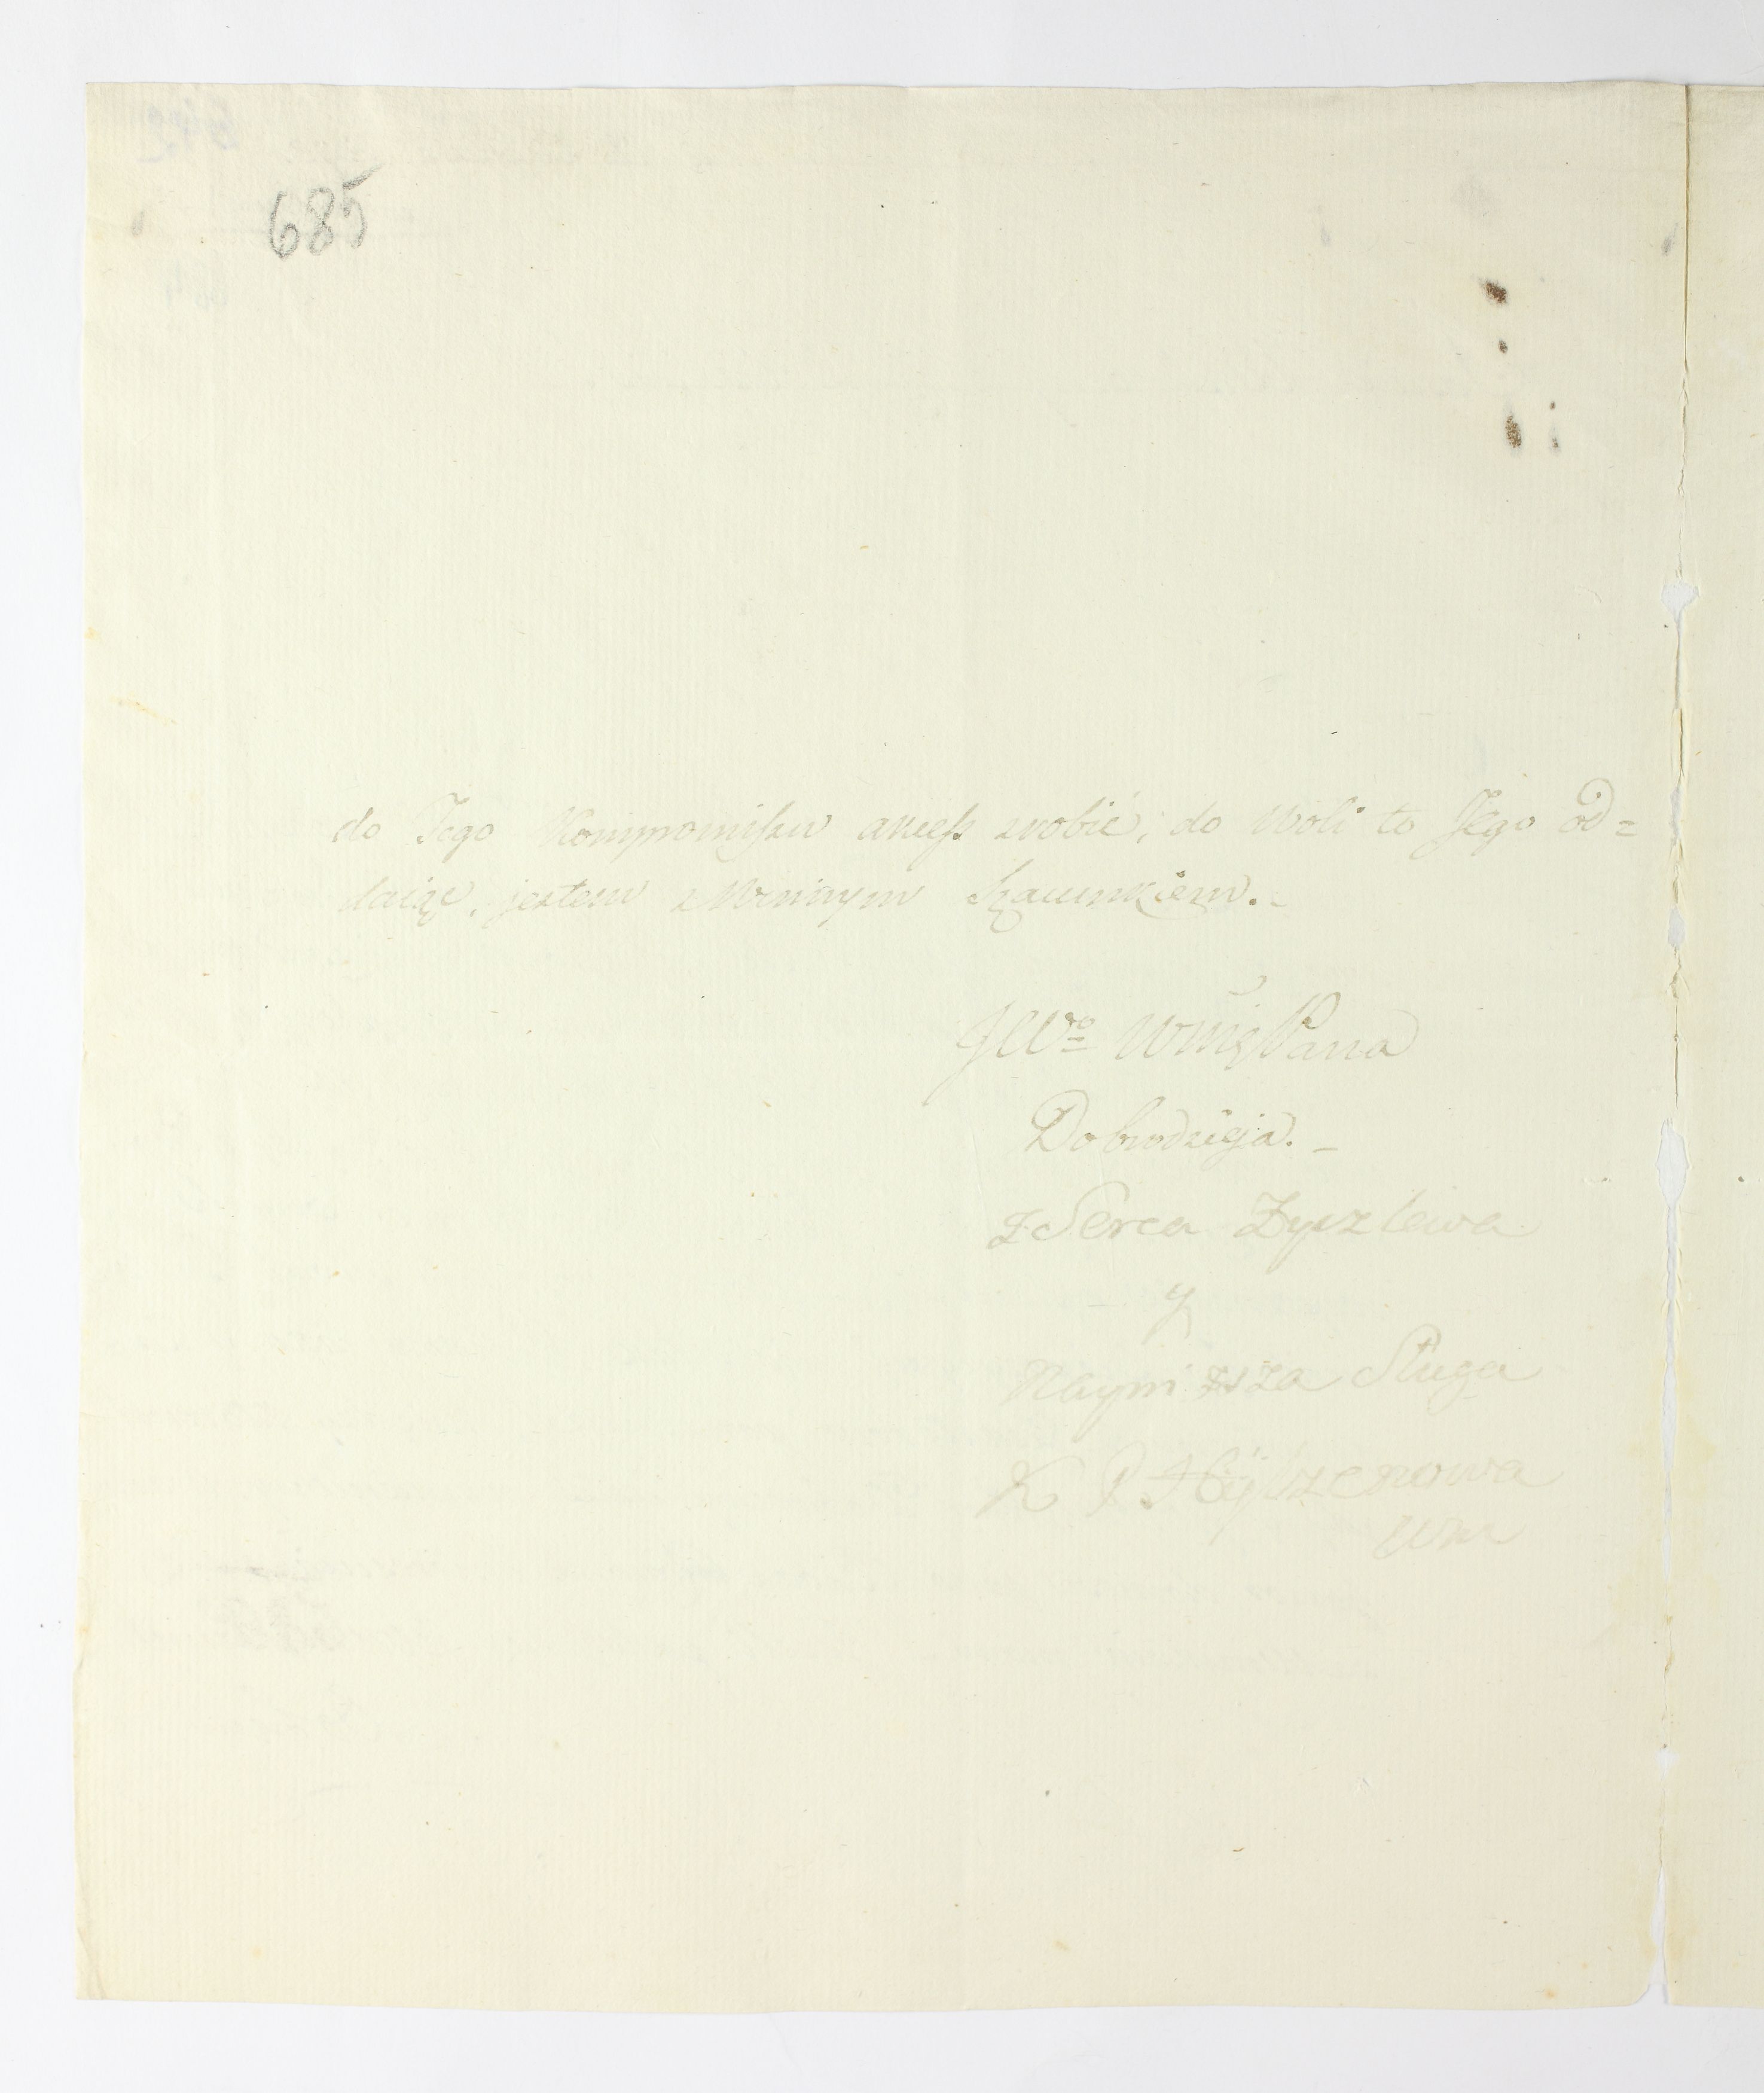 685
do Tego Kompromissu akcess zrobić; do Woli to Jego od=
daiąc, jestem z Winnym Szacunkiem.
JWo WMę Pana
Dobrodzieja. _
z Serca Zyczlewa
y
Nayniszza Sługa
K P Hÿlzenowa